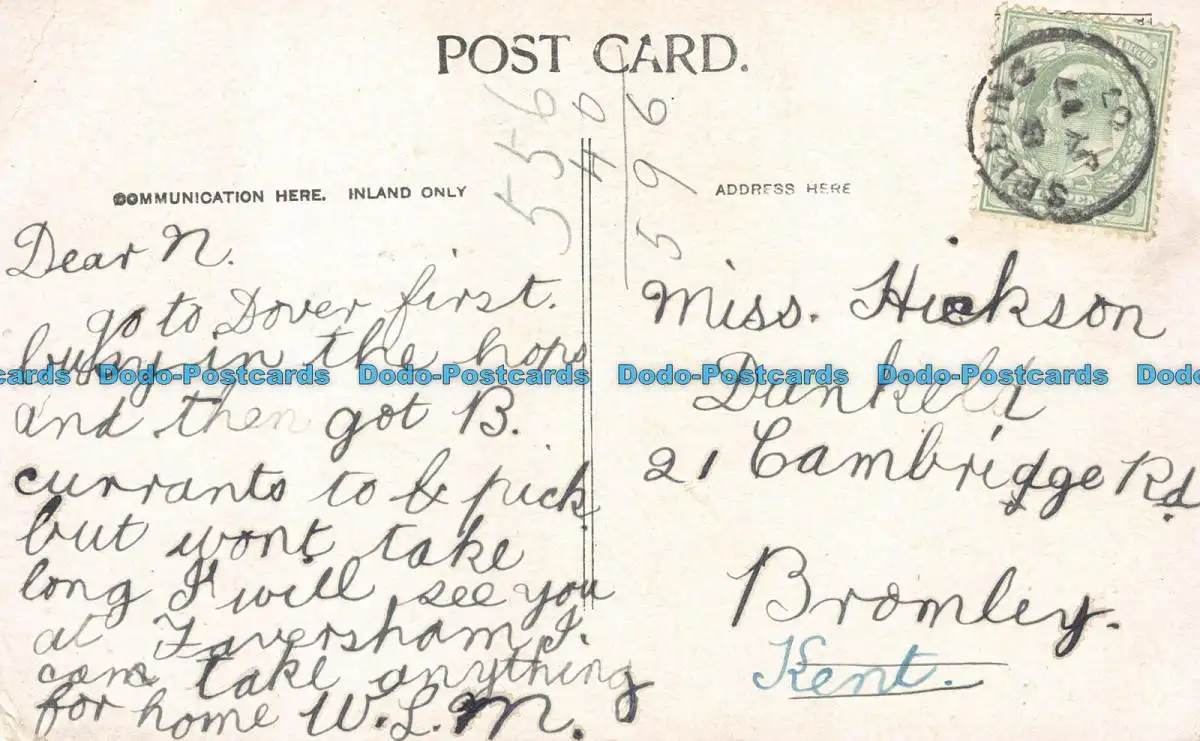 POST CARD.
556
40
596
COMMUNICATION HERE. INLAND ONLY
ADDRESS HERE
SELLING
JY 17
07
Dear N.
go to Dover first.
busy in the hops
and then got B.
currants to be pick
but wont take
long I will see you
at Faversham I.
can take anything
for home W.L.M.
Miss. Hickson
Dunkeld
21 Cambridge Rd.
Bromley.
Kent.
Dodo-Postcards Dodo-Postcards Dodo-Postcards Dodo-Postcards